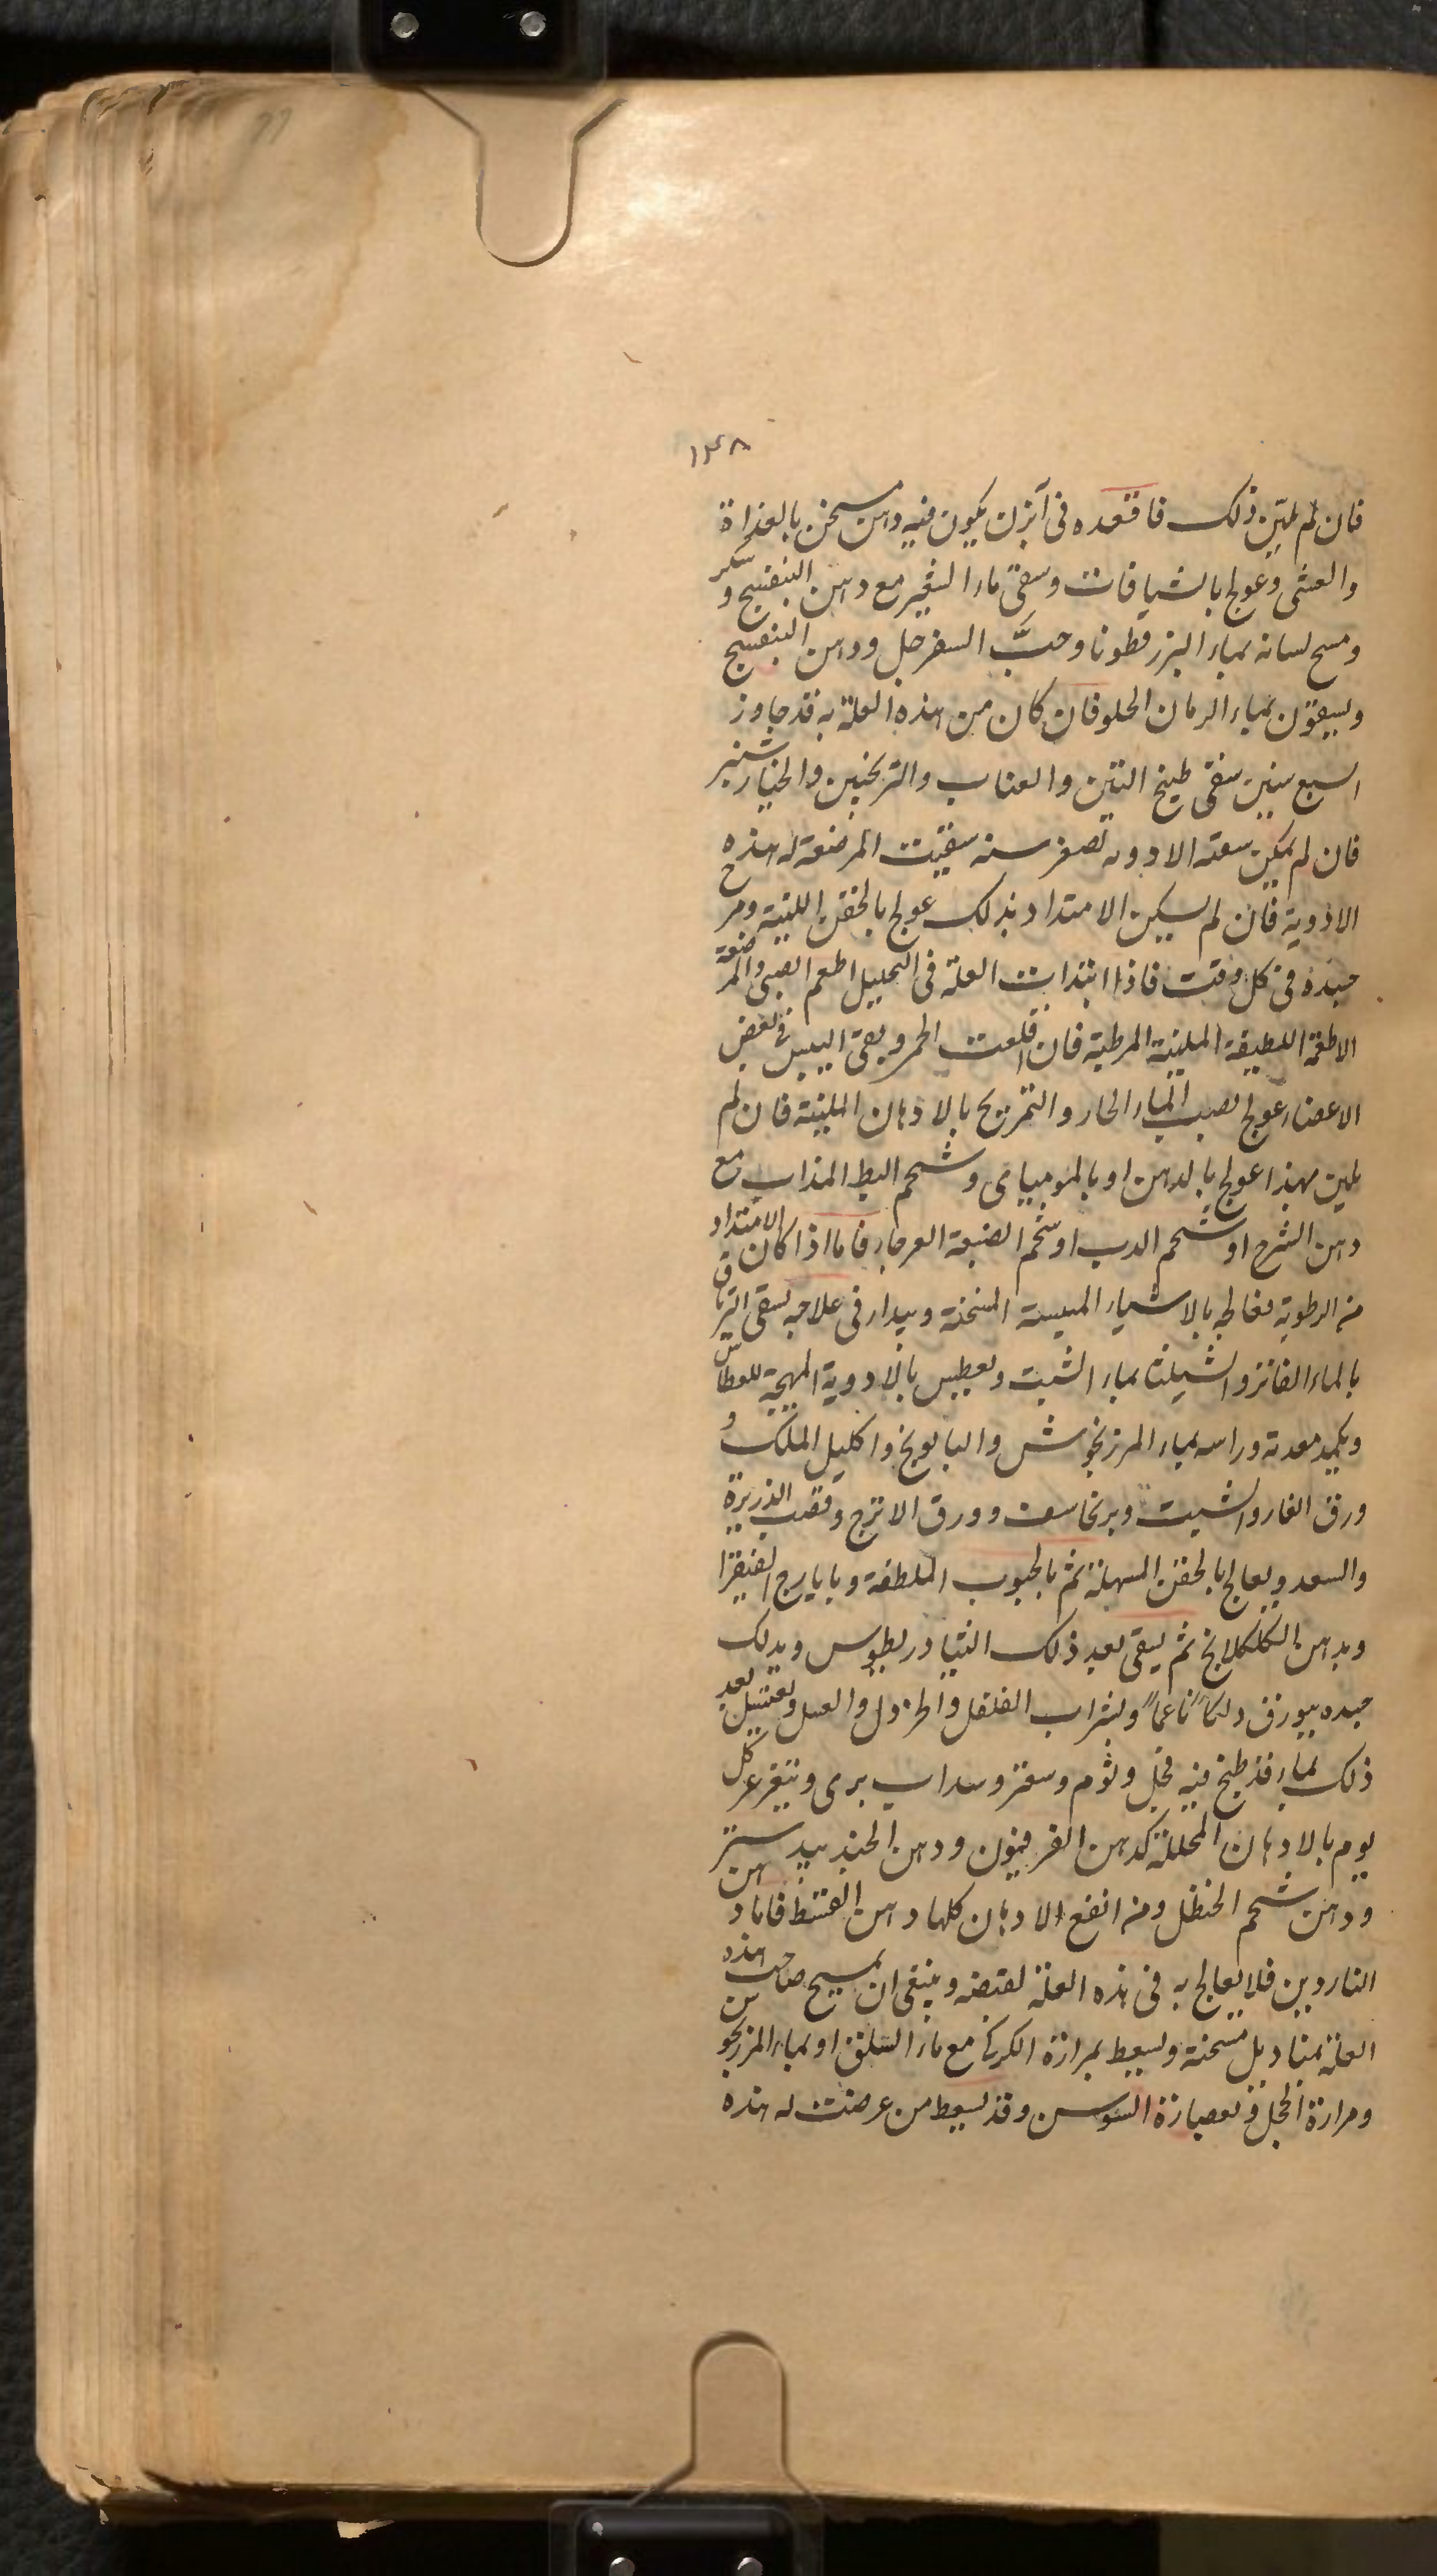 ١٤٨
فان لم يلين ذلك فاقعده فى آبزن يكون فيه دهن مسخن بالغداة
والعشى وعولج بالشيافات وسقى ماء الشعير مع دهن البنفسج وسكر
ومسح لسانه بماء البزرقطونا وحب السفرجل ودهن البنفسج
ويسقون بماء الرمان الحلو فان كان من هذه العلة به قد جاوز
السبع سنين سقى طبيخ التين والعناب والترنجبين والخيارشنبر
فان لم يمكن سقيه الادوية لصغر سنه سقيت المرضعة له هذه
الادوية فان لم يسكن الامتداد بذلك عولج بالحقن اللينة ومرخ
جسده فى كل وقت فاذا ابتدات العلة فى التحليل اطعم الصبى والمرضعة
الاطعمة اللطيفة الملينة المرطبة فان اقلعت الحمى وبقى اليبس فى بعض
الاعضاء عولج بصب الماء الحار والتمريخ بالادهان الملينة فان لم
يلين بهذا عولج بالدهن او بالموميايى وشحم البط المذاب مع
دهن الشيرج او شحم الدب او شحم الضبعة العرجاء فاما اذا كان الامتداد
من الرطوبة فعالجه بالاشياء الميبسة المسخنة ويبدا فى علاجه بسقى الترياق
بالماء الفاتر والشيلثا بماء الشبت ويعطس بالادوية المهيجة للعطاس
ويكمد معدته وراسه بماء المرزنجوش والبابونج واكليل الملك و
ورق الغار والشبت وبرنجاسف وورق الاترج وقصب الذريرة
والسعد ويعالج بالحقن المسهلة ثم بالحبوب الملطفة وبايارج الفيقرا
وبدهن الكلكلانج ثم يسقى بعد ذلك الثيادريطوس ويدلك
جسده ببورق دلكا ناعما وبشراب الفلفل والخردل والعسل ويغتسل بعد
ذلك بماء قد طبخ فيه فجل وثوم وسعتر وسداب برى ويتغرغر كل
يوم بالادهان المحللة كدهن الفرفيون ودهن الجندبيدستر
ودهن شحم الحنظل ومن انفع الادهان كلها دهن القسط فاما دهن
الناردين فلا يعالج به فى هذه العلة لقبضه وينبغى ان يمسح صاحب هذه
العلة بمناديل مسخنة ويسعط بمرارة الكركى مع ماء السلق او بماء المرزنجوش
ومرارة الحجل وبعصارة السوسن وقد يسعط من عرضت له هذه